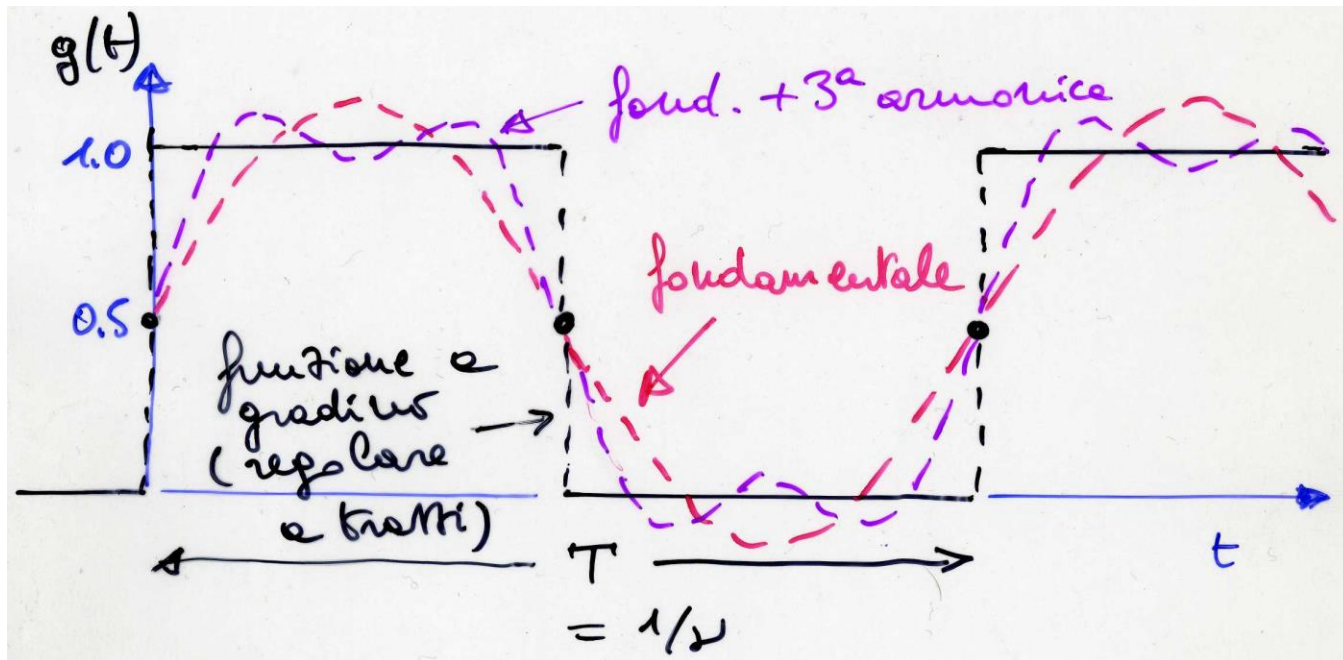 g(t)
fond. + 3ª armonica
1.0
fondamentale
0.5
funzione a
gradino
(regolare
a tratti)
T
= 1/ν
t